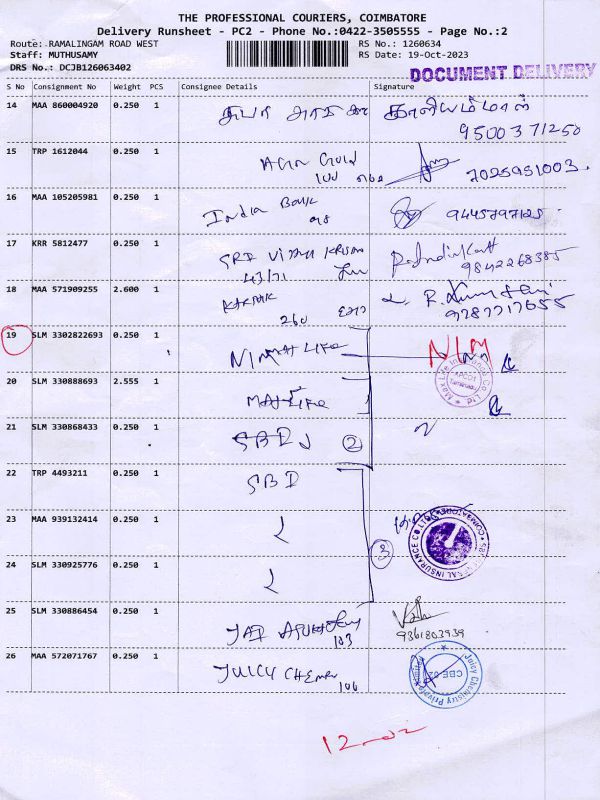 THE PROFESSIONAL COURIERS, COIMBATORE
Delivery Runsheet - PC2 - Phone No.:0422-3505555 - Page No.:2
Route: RAMALINGAM ROAD WEST
RS No.: 1260634
Staff: MUTHUSAMY
RS Date: 19-Oct-2023
DRS No.: DCJB126063402
DOCUMENT DELIVERY
S No Consignment No Weight PCS Consignee Details Signature
14 MAA 860004920 0.250 1
95003 71250
15 TRP 1612044 0.250 1
7025951003
16 MAA 105205981 0.250 1 India Bank
9445797125
17 KRR 5812477 0.250 1 SRI
43/71
9842268385
18 MAA 571909255 2.600 1
260
9787717655
19 SLM 3302822693 0.250 1 LIFE NIM
20 SLM 330888693 2.555 1 Max Life
21 SLM 330868433 0.250 1 SBI 2
22 TRP 4493211 0.250 1 SBI
23 MAA 939132414 0.250 1 3
24 SLM 330925776 0.250 1
25 SLM 330886454 0.250 1 JAI
103
9361803939
26 MAA 572071767 0.250 1 JUICY CHEMI
106
Juicy Chemistry Private Limited
CBE-02
12-02